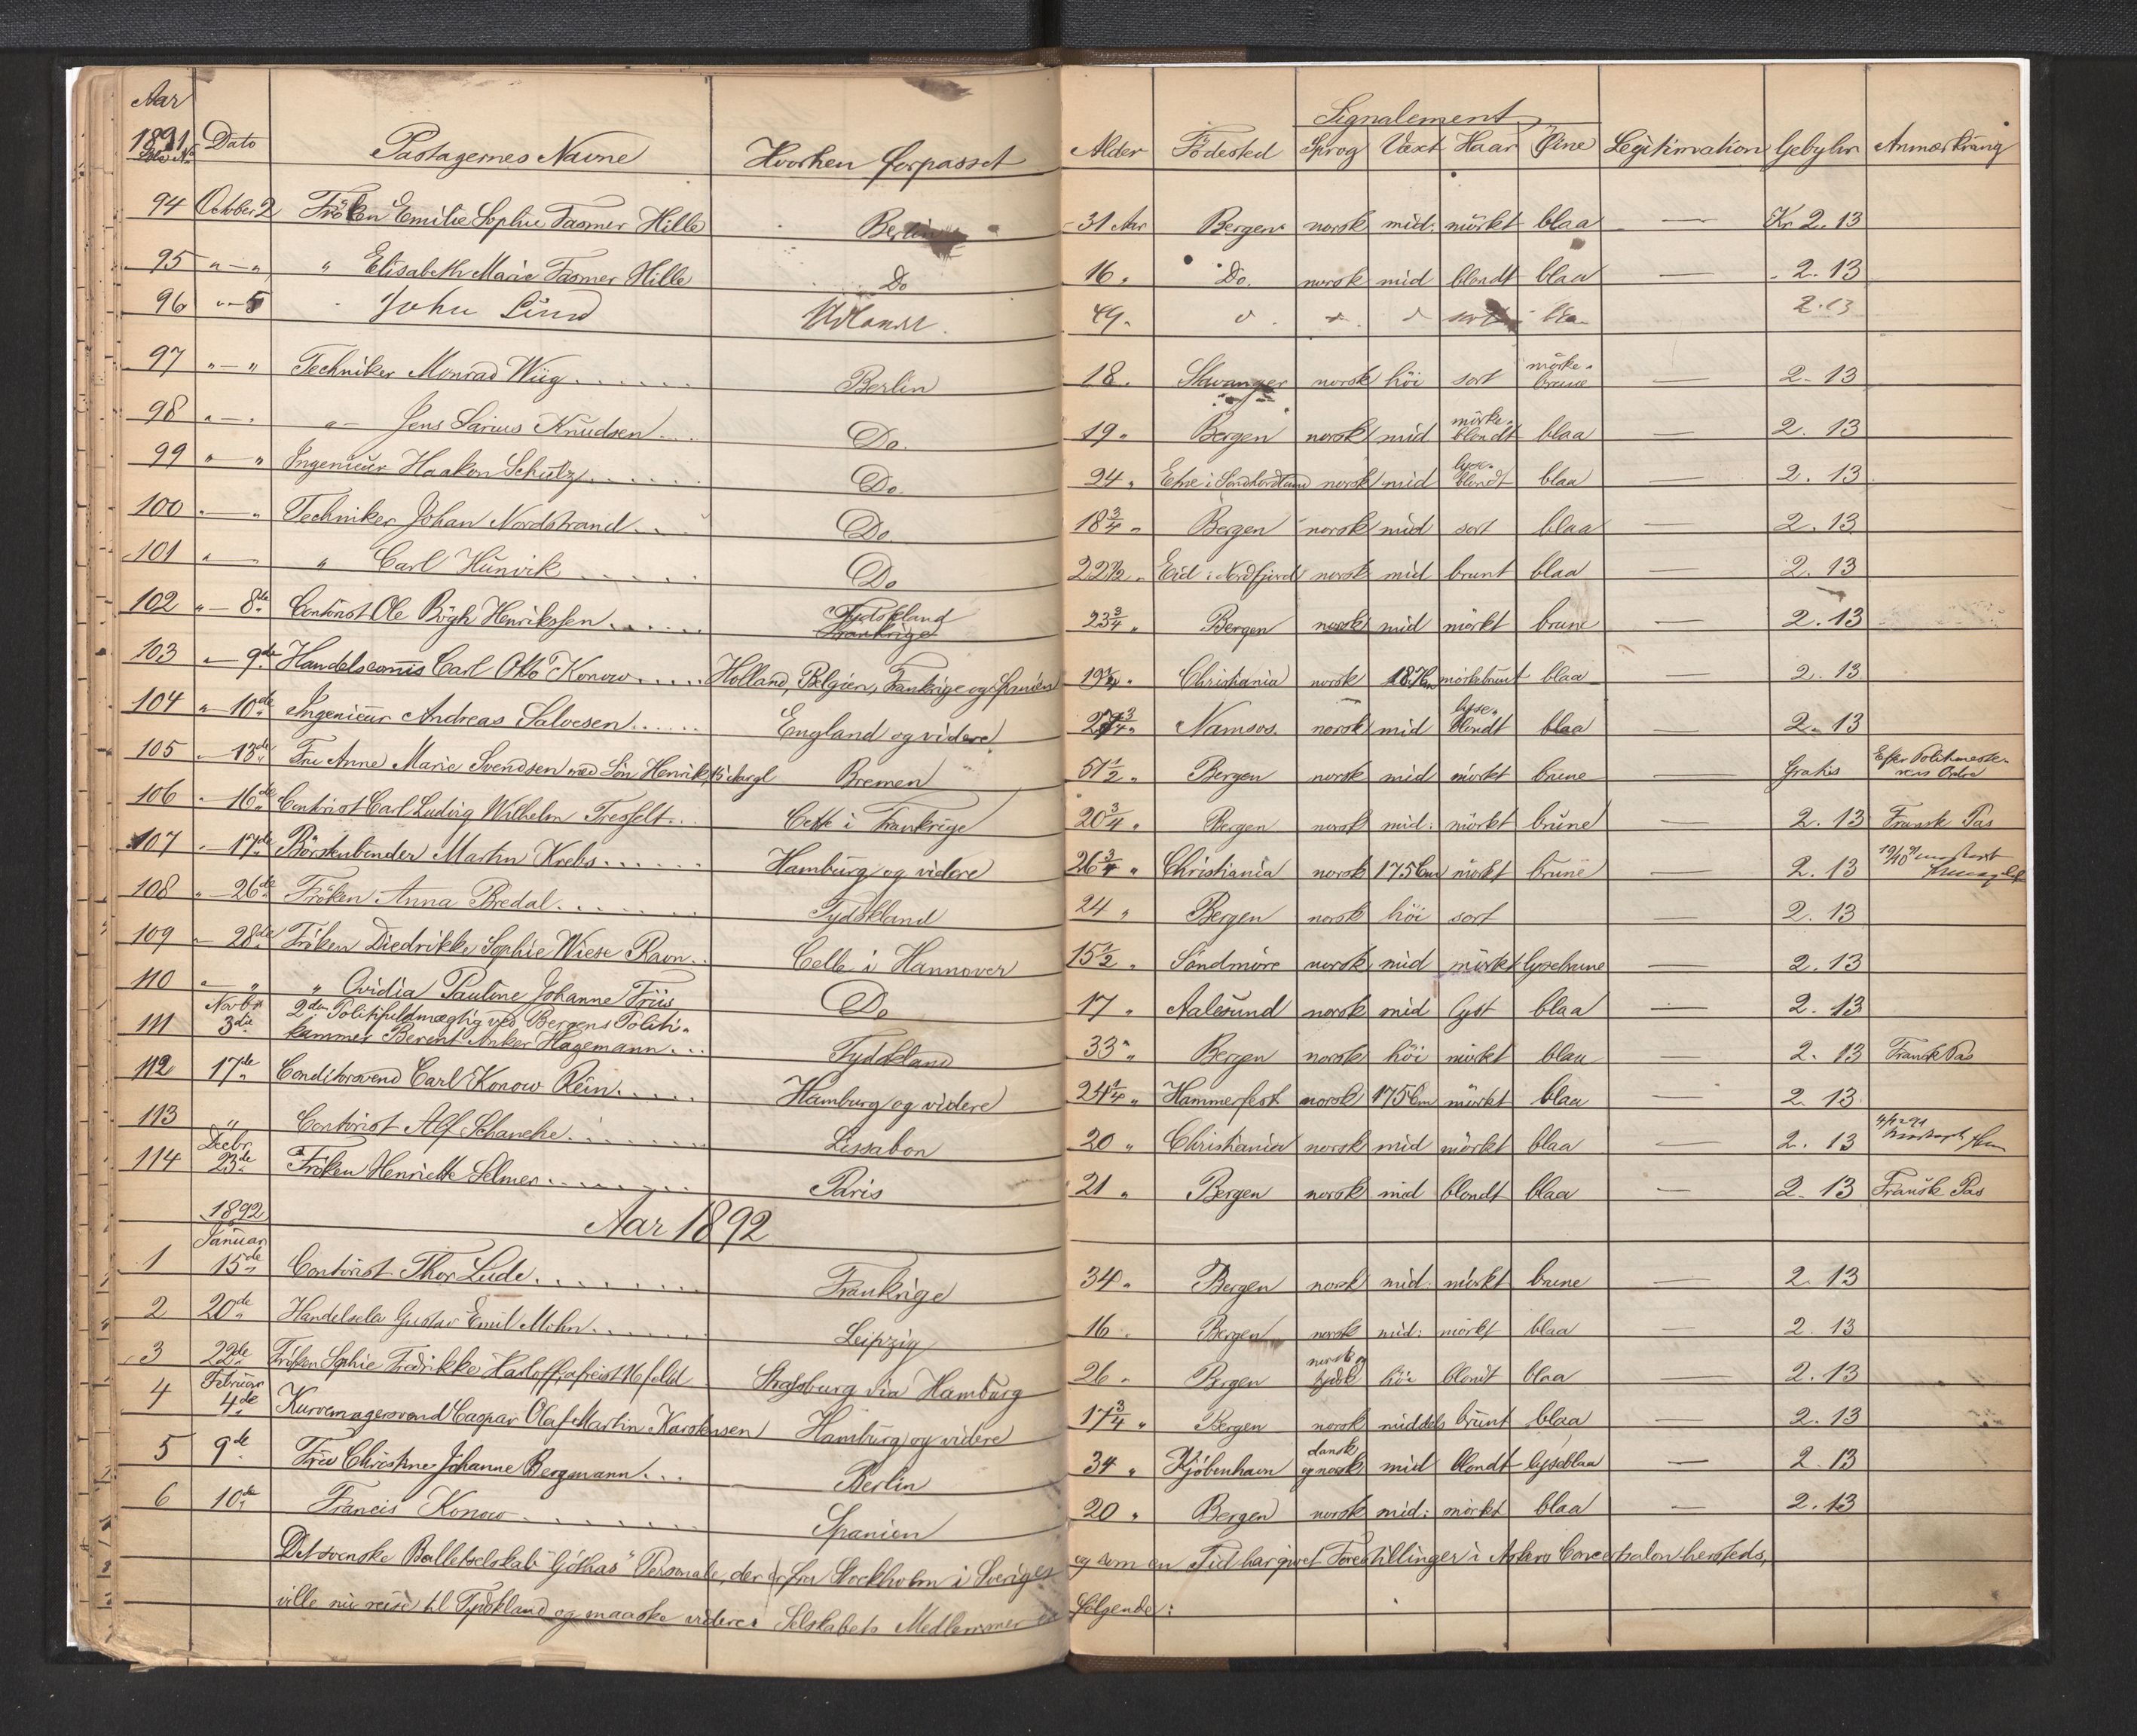 Aar
1891 Dato Passagernes Navne Hvorhen forpasset Alder Födested Signalement Sprog Væxt Haar Öine Legitimation Gebyhr Anmærkning
Löbe No
94 October 2 Fröken Emilie Sophie Fasmer Hille Berlin 31 Aar Bergen norsk mid: mörkt blaa — Kr 2.13
95 " — " " Elisabeth Marie Fasmer Hille Do 16 " Do. norsk mid blondt blaa — 2.13
96 " — 5 John Lund Udlandet 49 " sort blaa 2.13
97 " — " Techniker Monrad Wiig Berlin 18 " Stavanger norsk höi sort mörkebrune — 2.13
98 " — " " — Jens Sarius Knudsen Do. 19 " Bergen norsk mid mörkeblondt blaa — 2.13
99 " — " Ingenieur Haakon Schutz Do. 24 " Etne i Söndhordland norsk mid lyseblondt blaa — 2.13
100 " — " Techniker Johan Nordstrand Do 18 3/4 " Bergen norsk mid sort blaa — 2.13
101 " — " " Carl Hunvik Do 22 1/2 " Eid i Nordfjord norsk mid brunt blaa — 2.13
102 " — 8de Contorist Ole Bögh Henrikssen Tydskland Frankrige 23 3/4 " Bergen norsk mid mörkt brune — 2.13
103 " — 9de Handelscommis Carl Otto Konow Holland, Belgien, Frankrige og Spanien 19 1/2 " Christiania norsk mörkebrunt blaa — 2.13
104 " — 10de Ingenieur Andreas Salvesen England og videre 3/4 " Namsos norsk mid lyseblondt blaa — 2.13
105 " — 13de Fru Anne Marie Svendsen med Sön Henrik, 15 Aar gl Bremen 51 1/2 " Bergen norsk mid mörkt brune — Gratis Efter Politimesterens Ordre
106 " — 16de Contorist Carl Ludvig Wilhelm Tresselt Cette i Frankrige 20 3/4 " Bergen norsk mid: mörkt brune — 2.13 Fransk Pas
107 " — 17de Börstenbinder Martin Krebs Hamburg og videre 26 3/4 " Christiania norsk 175 Cm mörkt brune — 2.13
108 " — 26de Fröken Anna Bredal Tydskland 24 " Bergen norsk höi sort — 2.13
109 " — 28de Fröken Diedrikke Sophie Wiese Ravn Celle i Hannover 15 1/2 " Söndmöre norsk mid mörkt lysebrune — 2.13
110 " " " Ovidia Pauline Johanne Friis Do 17 " Aalesund norsk mid lyst blaa — 2.13
111 Novbr 3die 2den Politifuldmægtig ved Bergens Politi-
kammer Berent Anker Hagemann Tydskland 33 " Bergen norsk höi mörkt blaa — 2.13 Fransk Pas
112 17de Conditorsvend Carl Konow Rein Hamburg og videre 24 1/4 " Hammerfest norsk 175 Cm mörkt blaa — 2.13
113 " Contorist Alf Schanche Lissabon 20 " Christiania norsk mid mörkt blaa — 2.13
114 Decbr 23de Fröken Henriette Selmer Paris 21 " Bergen norsk mid blondt blaa — 2.13 Fransk Pas
1892 Aar 1892
Januar
1 15de Contorist Thor Lude Frankrige 34 " Bergen norsk mid mörkt brune — 2.13
2 20de Handelselev Gustav Emil Mohn Leipzig 16 " Bergen norsk mid: mörkt blaa — 2.13
3 22de Fröken Sophie Fredrikke Harloff, afreist 16 feb Strassburg via Hamburg 26 " Bergen norsk og tydsk höi blondt blaa — 2.13
4 Februar 4de Kurvemagersvend Caspar Olaf Martin Karstensen Hamburg og videre 17 3/4 " Bergen norsk middels brunt blaa — 2.13
5 9de Fru Christine Johanne Bergmann Berlin 34 " Kjöbenhavn dansk og norsk mid blondt lyseblaa — 2.13
6 10de Francis Konow Spanien 20 " Bergen norsk mid: mörkt blaa — 2.13
Det svenske Balletselskab "Göthas" Personale, der er fra Stockholm i Sverige og som en Tid har givet Forestillinger i Concertsalon hersteds,
ville nu reise til Tydskland og maaske videre. Selskabets Medlemmer er følgende: